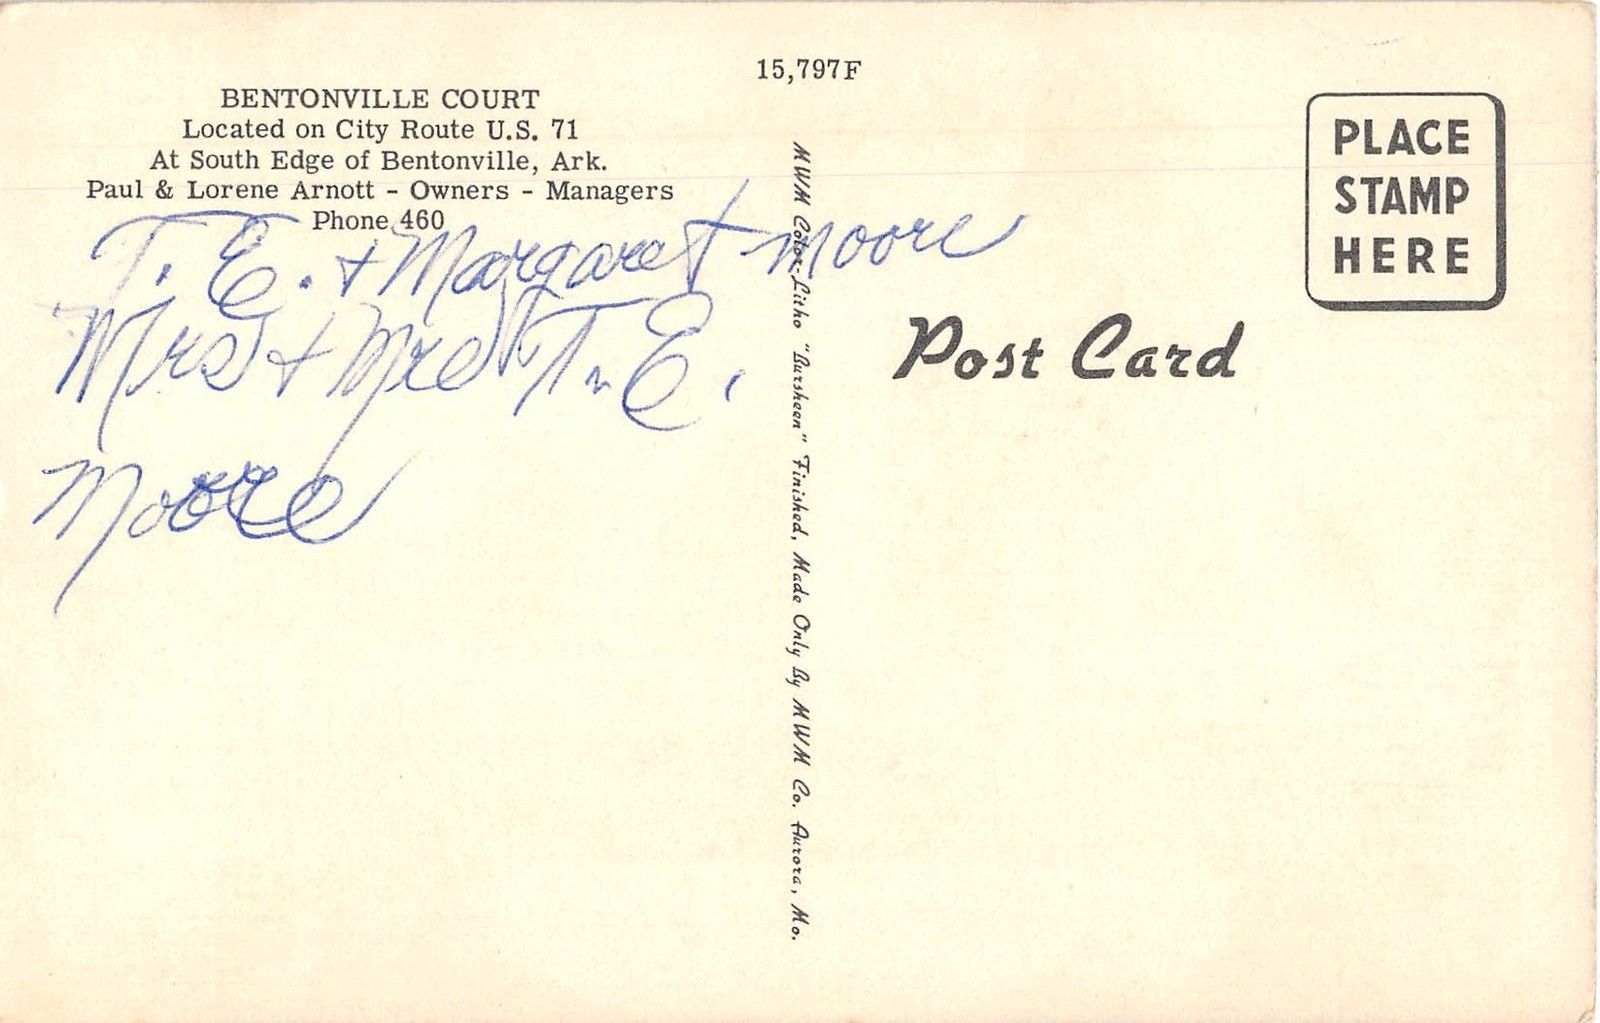 15,797F
BENTONVILLE COURT
Located on City Route U.S. 71
At South Edge of Bentonville, Ark.
Paul & Lorene Arnott - Owners - Managers
Phone 460
T. E. + Margaret Moore
Mrs + Mrs T. E.
Moore
MWM Color-Litho "Bursheen" Finished, Made Only By MWM Co. Aurora, Mo.
PLACE
STAMP
HERE
Post Card